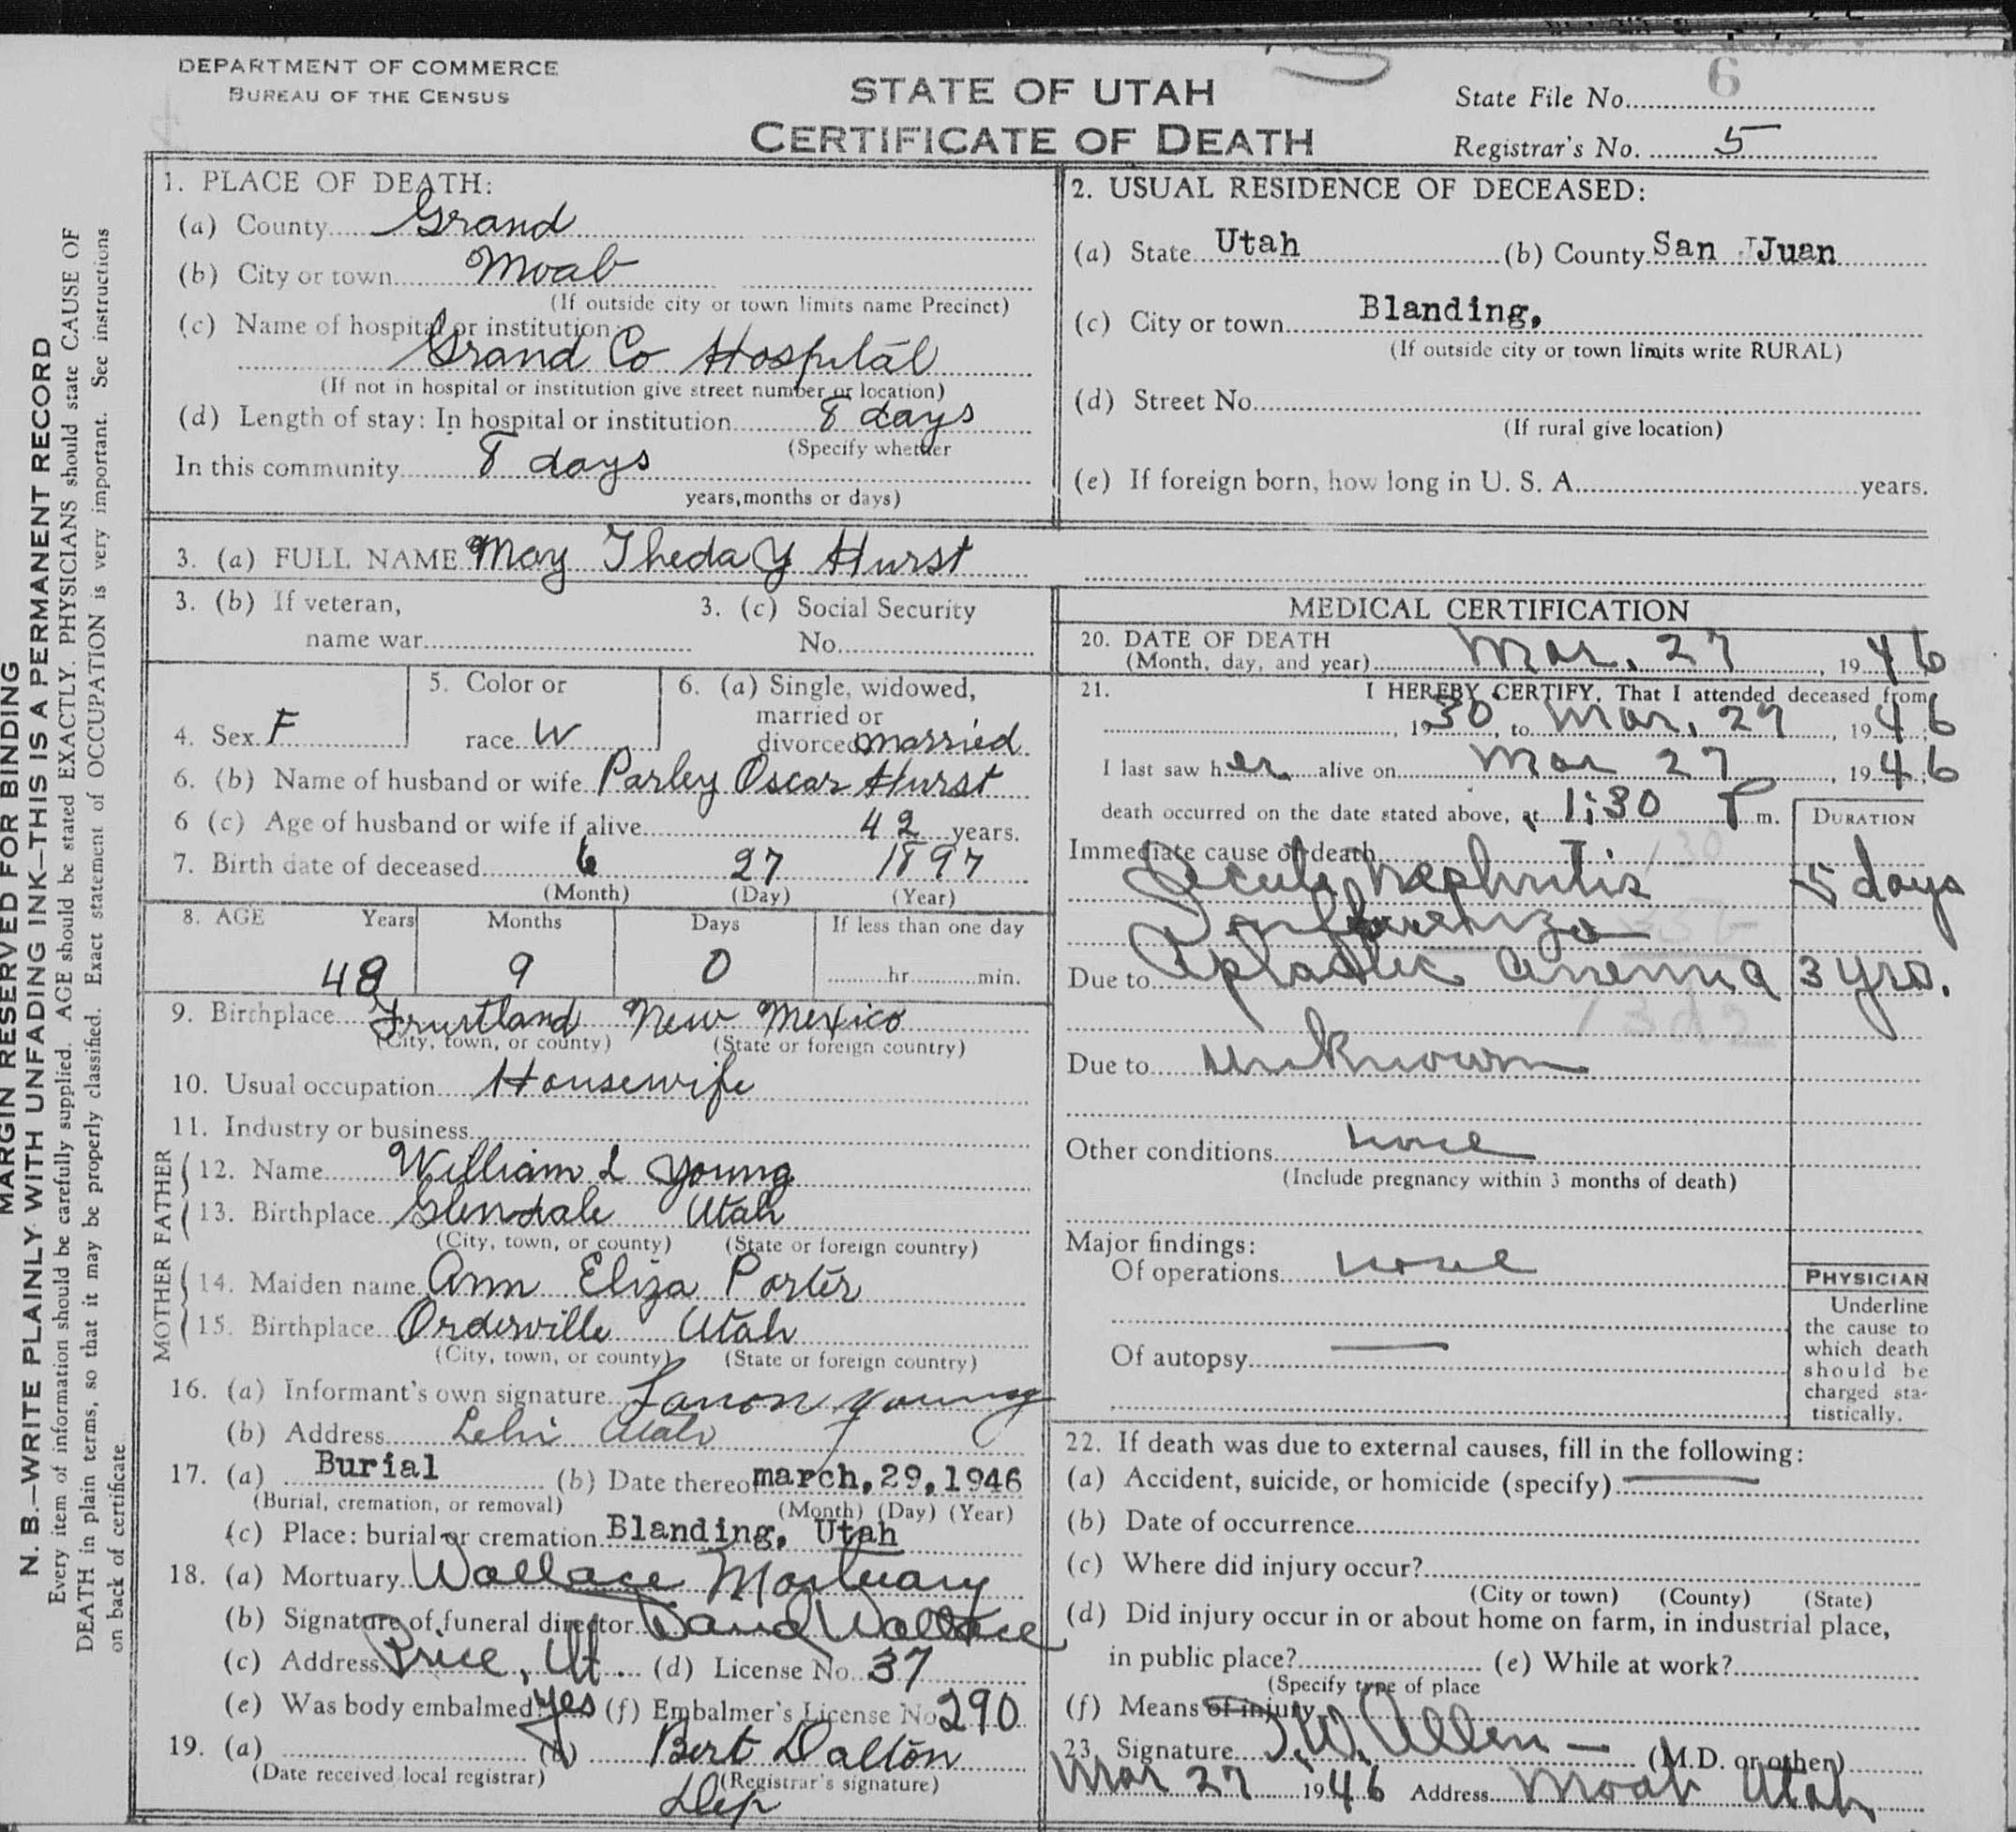 DEPARTMENT OF COMMERCE
BUREAU OF THE CENSUS
STATE OF UTAH
CERTIFICATE OF DEATH
State File No. 6
Registrar's No. 5
MARGIN RESERVED FOR BINDING
N. B.—WRITE PLAINLY WITH UNFADING INK—THIS IS A PERMANENT RECORD
Every item of information should be carefully supplied. AGE should be stated EXACTLY. PHYSICIANS should state CAUSE OF
DEATH in plain terms, so that it may be properly classified. Exact statement of OCCUPATION is very important. See instructions
on back of certificate
1. PLACE OF DEATH:
(a) County Grand
(b) City or town Moab
(If outside city or town limits name Precinct)
(c) Name of hospital or institution:
Grand Co Hospital
(If not in hospital or institution give street number or location)
(d) Length of stay: In hospital or institution 8 days
(Specify whether
In this community 8 days
years, months or days)
2. USUAL RESIDENCE OF DECEASED:
(a) State Utah (b) County San Juan
(c) City or town Blanding,
(If outside city or town limits write RURAL)
(d) Street No.
(If rural give location)
(e) If foreign born, how long in U. S. A. years.
3. (a) FULL NAME May Theda Y Hurst
3. (b) If veteran,
name war
3. (c) Social Security
No.
4. Sex F
5. Color or
race W
6. (a) Single, widowed,
married or
divorced married
6. (b) Name of husband or wife Parley Oscar Hurst
6 (c) Age of husband or wife if alive 42 years.
7. Birth date of deceased 6 27 1897
(Month) (Day) (Year)
8. AGE Years Months Days If less than one day
48 9 0 hr. min.
9. Birthplace Fruitland New Mexico
(City, town, or county) (State or foreign country)
10. Usual occupation Housewife
11. Industry or business
FATHER
12. Name William L Young
13. Birthplace Glendale Utah
(City, town, or county) (State or foreign country)
MOTHER
14. Maiden name Ann Eliza Porter
15. Birthplace Orderville Utah
(City, town, or county) (State or foreign country)
16. (a) Informant's own signature Lanon Young
(b) Address Lehi Utah
17. (a) Burial (b) Date thereof march, 29, 1946
(Burial, cremation, or removal) (Month) (Day) (Year)
(c) Place: burial or cremation Blanding, Utah
18. (a) Mortuary Wallace Mortuary
(b) Signature of funeral director David Wallace
(c) Address Price, Ut. (d) License No. 37
(e) Was body embalmed? yes (f) Embalmer's License No. 290
19. (a) (b) Bert Dalton
(Date received local registrar) (Registrar's signature)
Dep
MEDICAL CERTIFICATION
20. DATE OF DEATH
(Month, day, and year) Mar. 27, 1946
21. I HEREBY CERTIFY, That I attended deceased from
, 1930, to Mar. 27, 1946;
I last saw her alive on Mar 27, 1946;
death occurred on the date stated above, at 1:30 P m.
DURATION
Immediate cause of death
Acute Nephritis 5 days
Influenza
Due to Aplastic anemia 3 yrs.
Due to unknown
Other conditions none
(Include pregnancy within 3 months of death)
Major findings:
Of operations none
Of autopsy —
PHYSICIAN
Underline
the cause to
which death
should be
charged sta-
tistically.
22. If death was due to external causes, fill in the following:
(a) Accident, suicide, or homicide (specify) —
(b) Date of occurrence
(c) Where did injury occur?
(City or town) (County) (State)
(d) Did injury occur in or about home on farm, in industrial place,
in public place? (e) While at work?
(Specify type of place
(f) Means of injury
23. Signature I.W. Allen — (M.D. or other)
Mar 27 1946 Address Moab Utah